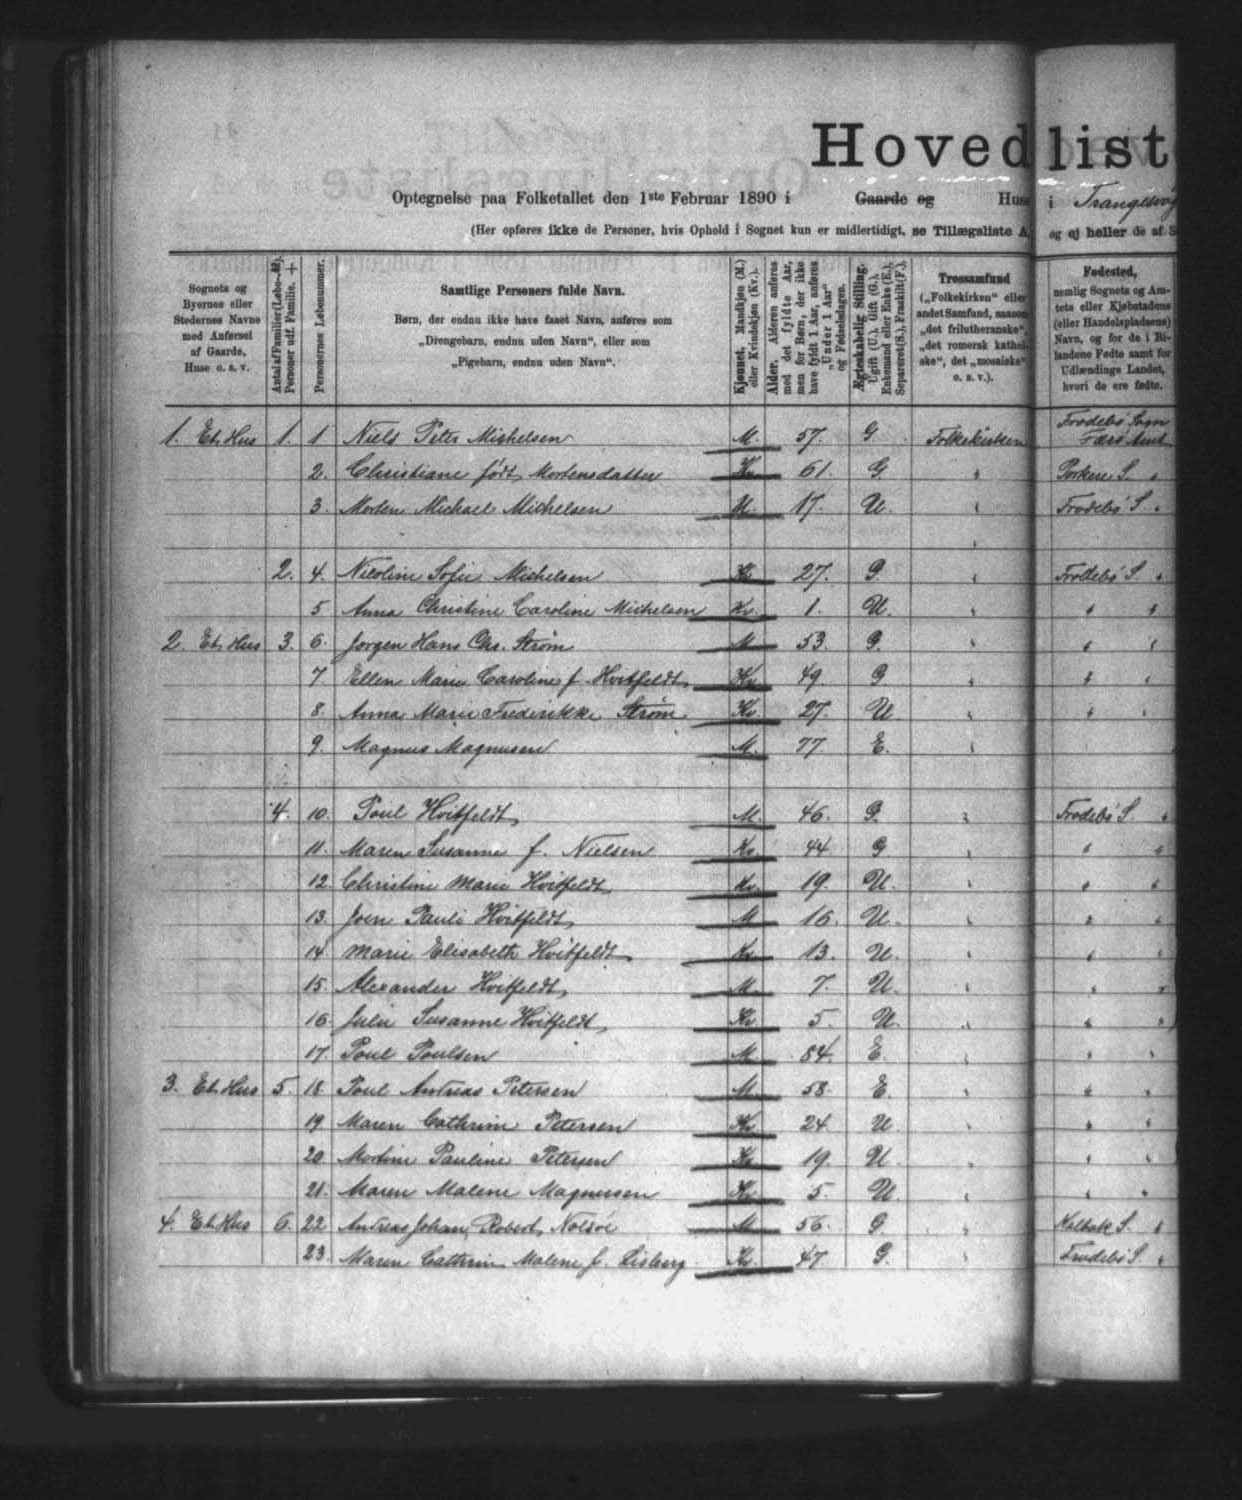 Hovedlist
Optegnelse paa Folketallet den 1ste Februar 1890 i Gaarde og Huse i Trangisvåg
(Her opføres ikke de Personer, hvis Ophold i Sognet kun er midlertidigt, se Tillægsliste A, og ej heller de af S
Sognets og Byernes eller Stedernes Navne med Anførsel af Gaarde, Huse o. s. v.
Antal af Familier (Løbe-No). Personer udf. Familie. +
Personernes Løbenummer.
Samtlige Personers fulde Navn.
Børn, der endnu ikke have faaet Navn, anføres som
„Drengebarn, endnu uden Navn“, eller som
„Pigebarn, endnu uden Navn“.
Kjønnet. Mandkjøn (M.) eller Kvindekjøn (Kv.).
Alder. Alderen anføres med det fyldte Aar, men for Børn, der ikke have fyldt 1 Aar, anføres „Under 1 Aar“ og Fødselsdagen.
Ægteskabelig Stilling. Ugift (U.), Gift (G.), Enkemand eller Enke (E.), Separeret (S.), Fraskilt (F.).
Trossamfund („Folkekirken“ eller andet Samfund, saasom „det frilutheranske“, „det romersk katholske“, det „mosaiske“ o. s. v.).
Fødested, nemlig Sognets og Amtets eller Kjøbstadens (eller Handelspladsens) Navn, og for de i Bilandene Fødte samt for Udlændinge Landet, hvori de ere fødte.
1. Et Hus 1. 1 Niels Peter Michelsen M. 57. G. Folkekirken Frodebø Sogn Færø Amt
2. Christiane født Mortensdatter Kv. 61. G " Porkere S. "
3. Morten Michael Michelsen M. 17. U. " Frodebø S. "
2. 4. Nicoline Sofie Michelsen Kv 27. G. " Frodebø S. "
5 Anna Christine Caroline Michelsen Kv. 1. U. " " "
2. Et Hus 3. 6. Jørgen Hans Chr. Strøm M 53. G. " " "
7. Ellen Marie Caroline f. Hvitfeldt Kv 49. G " " "
8. Anna Marie Frederikke Strøm Kv. 27. U " " "
9. Magnus Magnusen M. 77 E. "
4. 10. Poul Hvitfeldt M. 46. G. " Frodebø S. "
11. Maren Susanne f. Nielsen Kv. 44 G " " "
12. Christine Marie Hvitfeldt Kv. 19. U. " " "
13. Joen Pauli Hvitfeldt M 16. U. " " "
14. Marie Elisabeth Hvitfeldt Kv. 13. U. " " "
15. Alexander Hvitfeldt M. 7. U. " " "
16. Julie Susanne Hvitfeldt Kv. 5. U. " " "
17. Poul Poulsen M 84. E. " " "
3. Et Hus 5. 18. Poul Andreas Petersen M. 58. E. " " "
19 Maren Cathrine Petersen Kv 24. U. " " "
20. Mortine Pauline Petersen Kv 19. U. " " "
21. Maren Malene Magnussen Kv. 5. U. " " "
4. Et Hus 6. 22 Andreas Johan Robert Nolsøe M 56. G " Kalbak S. "
23. Maren Cathrine Malene f. Lisberg Kv. 47. G. " Frodebø S. "